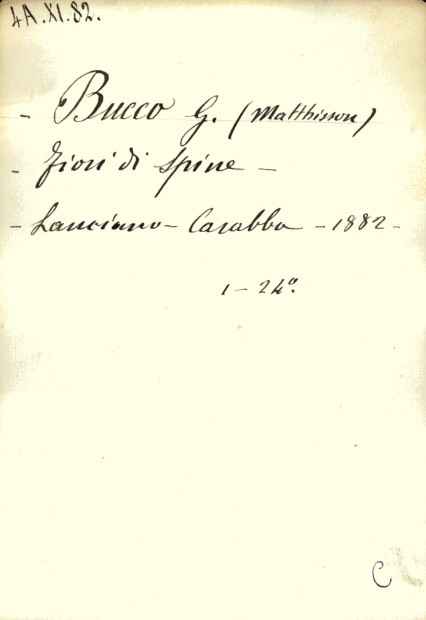 4A.XI.82.
- Bucco G. (Matthisson)
- Fiori di Spine -
- Lanciano - Carabba - 1882 -
1 - 24º.
C